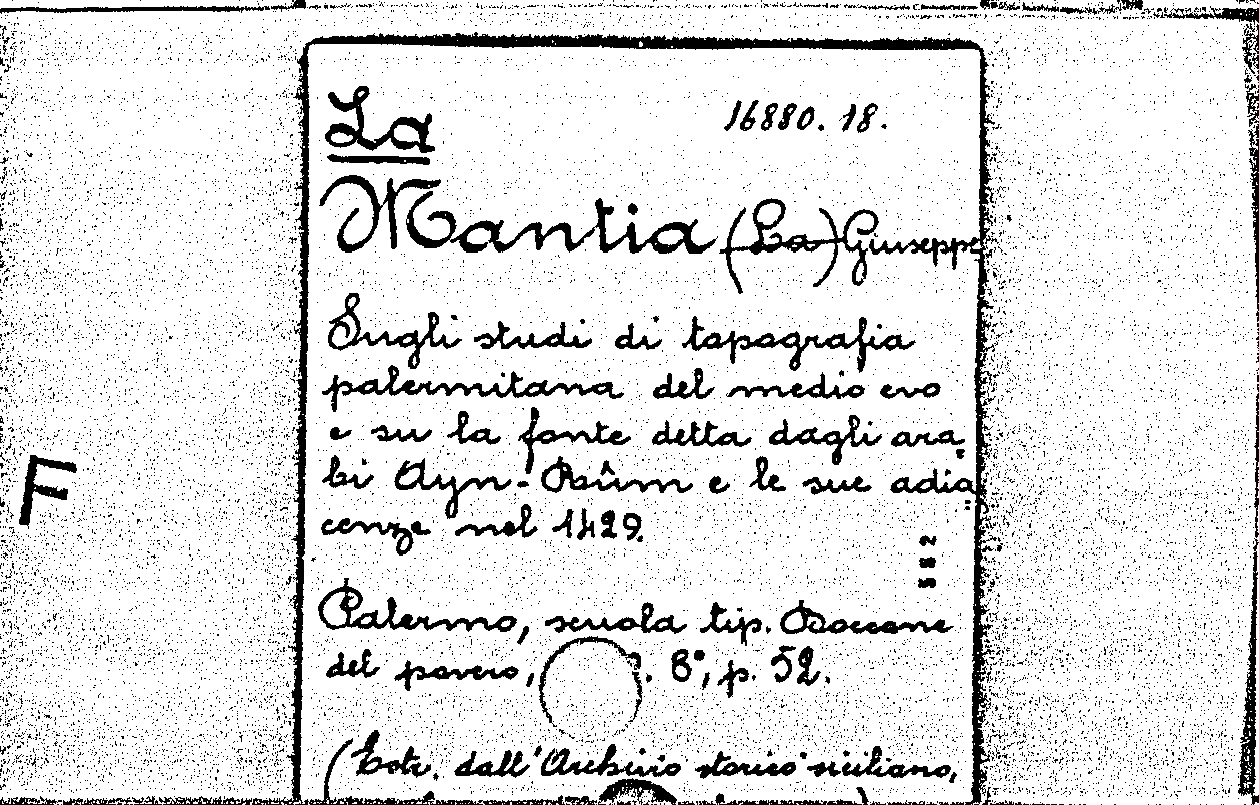 La
16880. 18.
Mantia (La) Giuseppe
Sugli studi di topografia
palermitana del medio evo
e su la fonte detta dagli ara
bi Ayn-Rûm e le sue adia
cenze nel 1429.
582
F
Palermo, scuola tip. Boccone
del povero, 8°, p. 52.
(Estr. dall'Archivio storico siciliano,